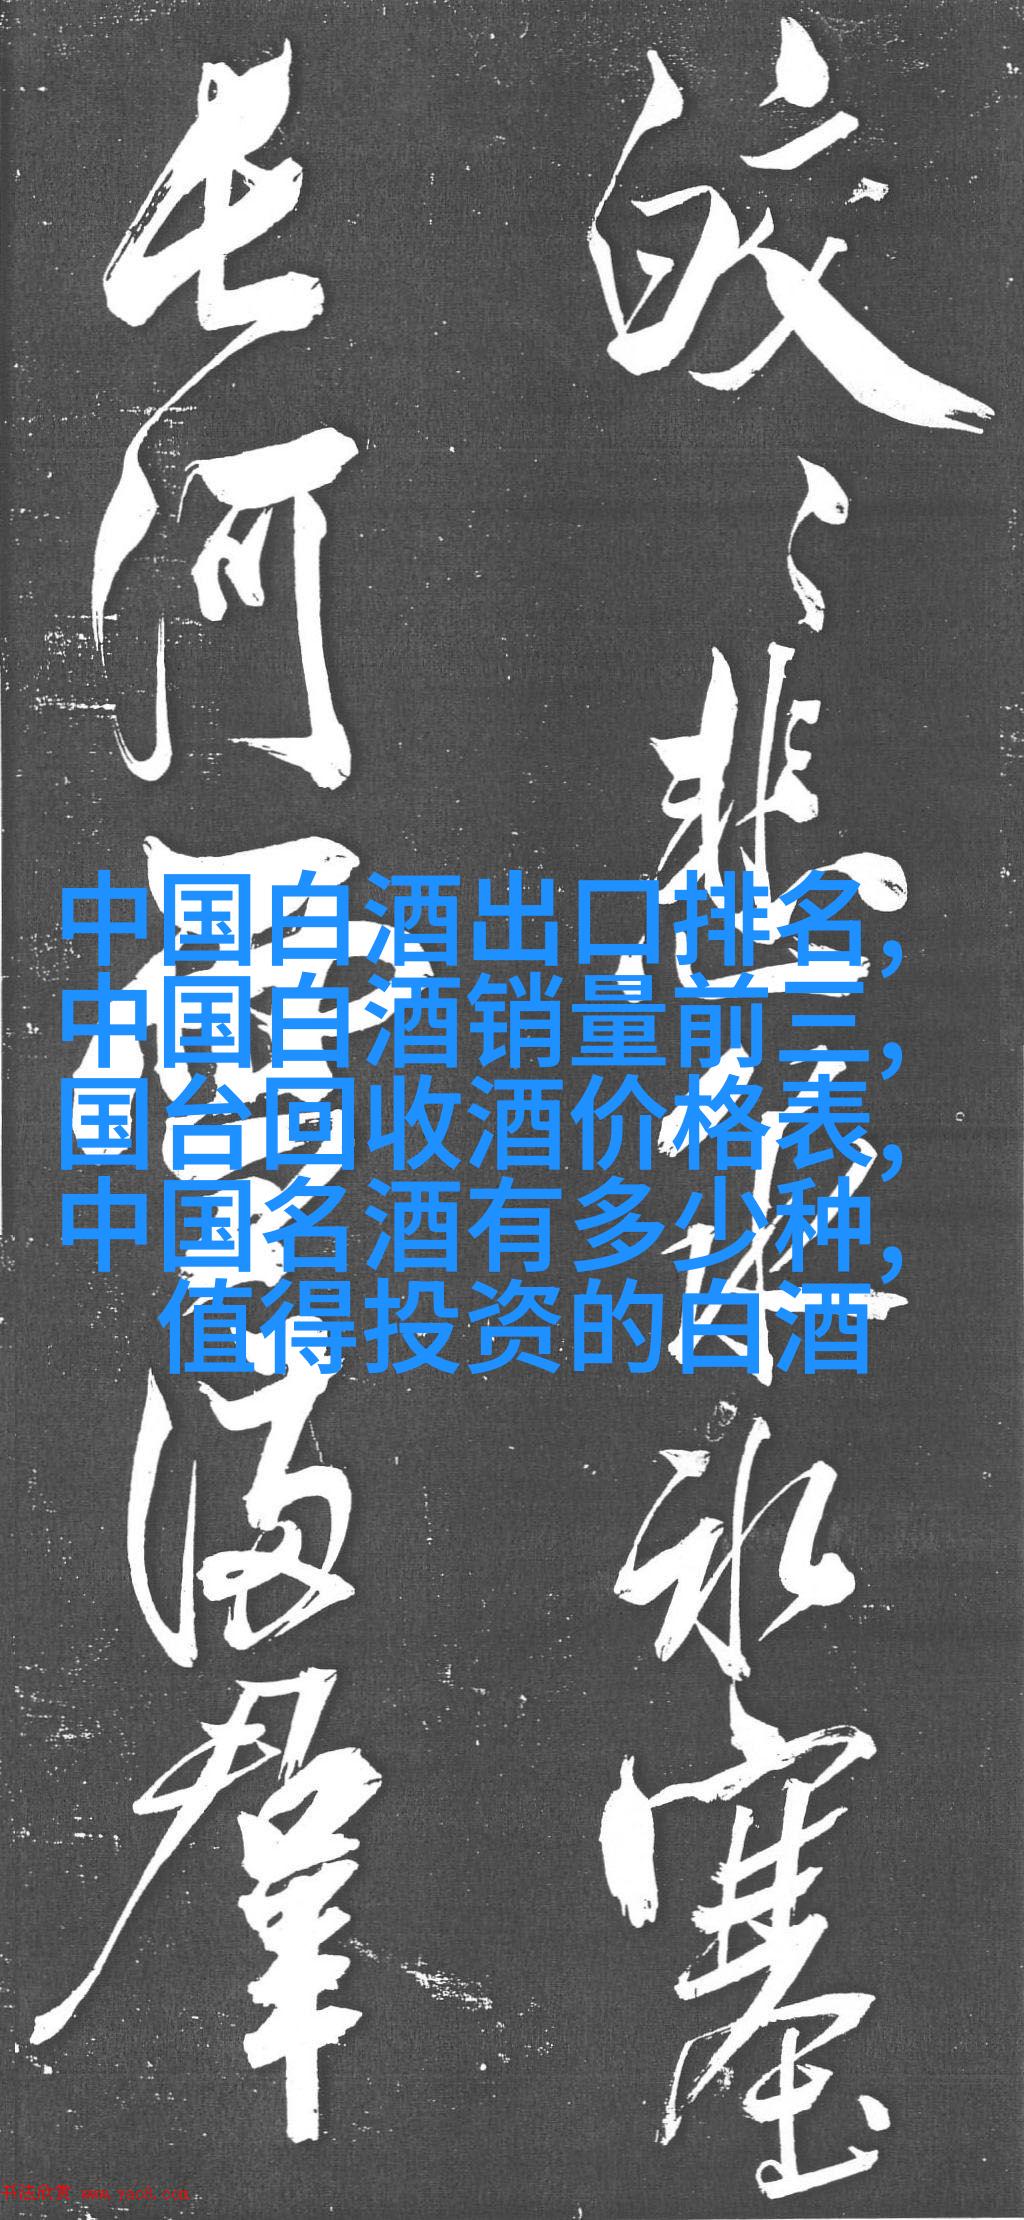 皎〻悲泉水塞
长河雪满群
中国白酒出口排名,
中国白酒销量前三,
国台回收酒价格表,
中国名酒有多少种,
值得投资的白酒
书法欣赏 www.yac8.com